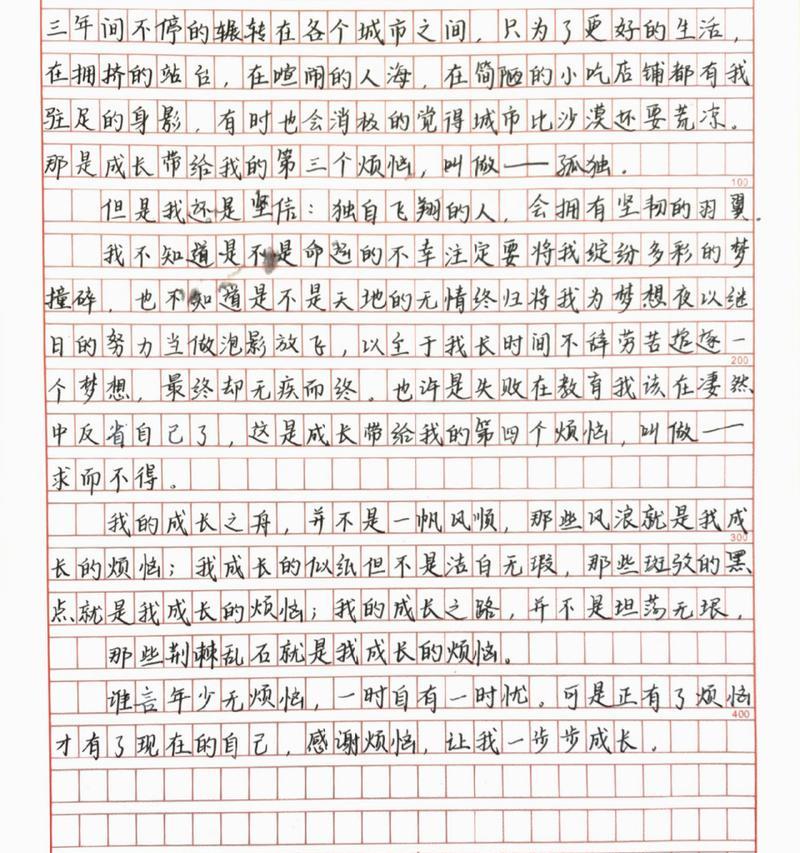 三年间不停的辗转在各个城市之间，只为了更好的生活，
在拥挤的站台，在喧闹的人海，在简陋的小吃店铺都有我
驻足的身影，有时也会消极的觉得城市比沙漠还要荒凉。
那是成长带给我的第三个烦恼，叫做——孤独．
100
但是我还是坚信：独自飞翔的人，会拥有坚韧的羽翼．
我不知道是不是命运的不幸注定要将我缤纷多彩的梦
撞碎，也不知道是不是天地的无情终归将我为梦想夜以继
日的努力当做泡影放飞，以至于我长时间不辞劳苦追逐一
200
个梦想，最终却无疾而终。也许是失败在教育我该在凄然
中反省自己了，这是成长带给我的第四个烦恼，叫做——
求而不得。
我的成长之舟，并不是一帆风顺，那些风浪就是我成
300
长的烦恼；我成长的似纸但不是洁白无瑕，那些斑驳的黑
点就是我成长的烦恼；我的成长之路，并不是坦荡无垠，
那些荆棘乱石就是我成长的烦恼。
谁言年少无烦恼，一时自有一时忧。可是正有了烦恼
400
才有了现在的自己，感谢烦恼，让我一步步成长．